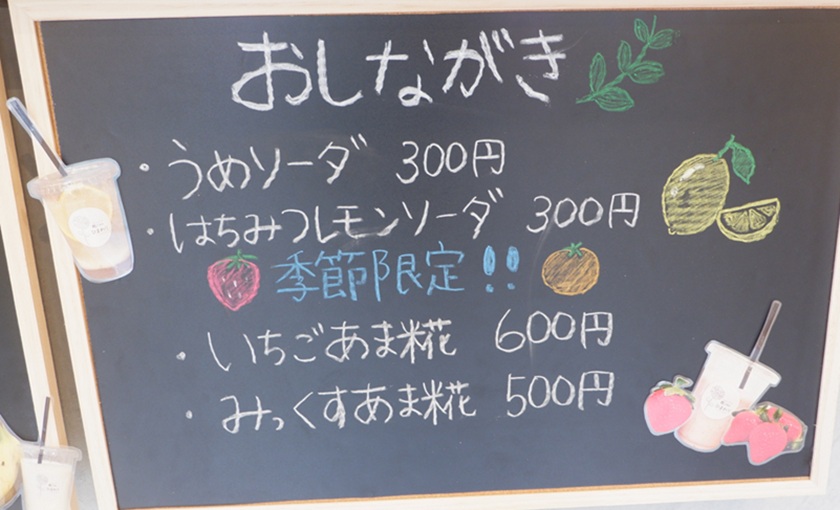 おしながき
・うめソーダ 300円
・はちみつレモンソーダ 300円
季節限定!!
・いちごあま糀 600円
・みっくすあま糀 500円